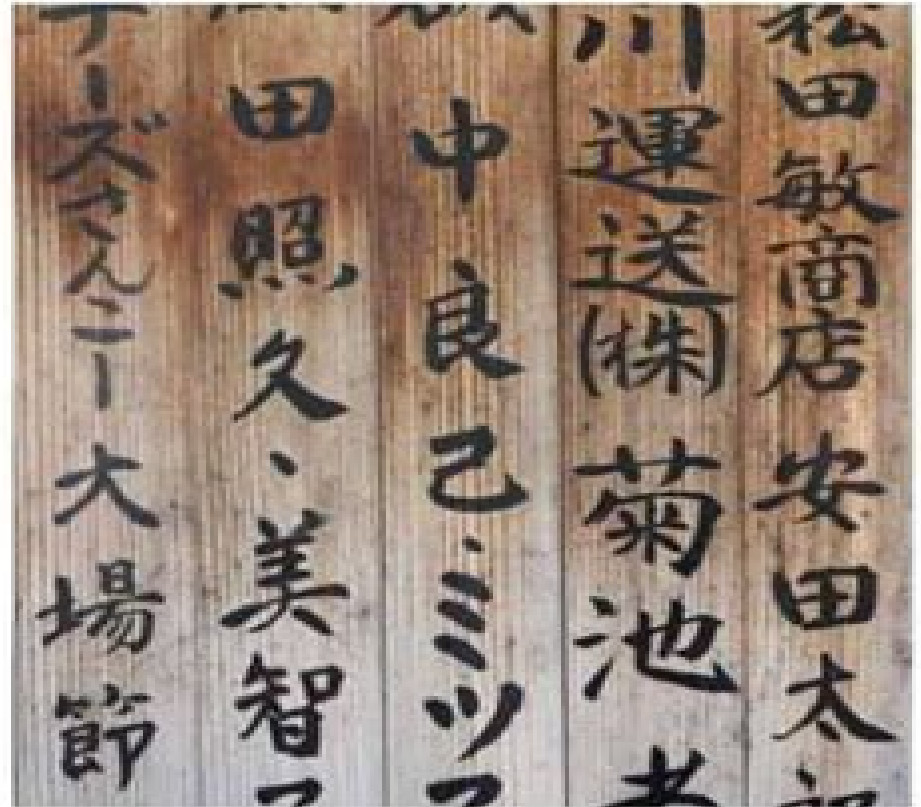 松田敏商店 安田太
川運送(株) 菊池
中良己・ミツ
田照久・美智
ーズさんこー 大場節